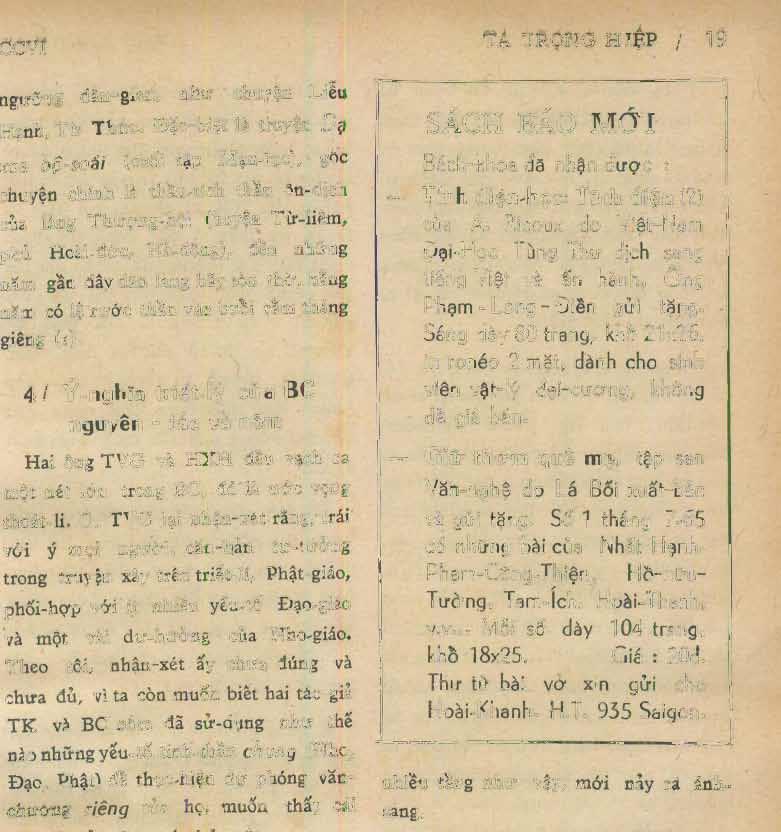 CCVI
TẠ TRỌNG HIỆP / 19
ngưỡng dân-gian như chuyện Liễu
Hạnh, Từ Thức. Đặc-biệt là truyện Dạ
xoa bộ-soái (cuối tập Mạn-lục), gốc
chuyện chính là thần-tích thần ôn-dịch
của làng Thượng-hội (huyện Từ-liêm,
phủ Hoài-đức, Hà-đông), đến những
năm gần đây dân làng hãy còn thờ, hằng
năm có lệ rước thần vào buổi rằm tháng
giêng
4/ Ý-nghĩa triết-lý của BC
nguyên - tác và nôm
Hai ông TVG và HXH đều vạch ra
một nét lớn trong BC, đó là ước vọng
thoát-li. TVG lại nhận-xét rằng, trái
với ý mọi người, căn-bản tư-tưởng
trong truyện xây trên triết-lí Phật-giáo,
phối-hợp với nhiều yếu-tố Đạo-giáo
và một vài dư-hưởng của Nho-giáo.
Theo tôi, nhận-xét ấy chưa đúng và
chưa đủ, vì ta còn muốn biết hai tác giả
TK và BC nôm đã sử-dụng như thế
nào những yếu-tố tinh-thần chung (Nho,
Đạo, Phật) để thực-hiện dự phóng văn-
chương riêng của họ, muốn thấy cái
SÁCH BÁO MỚI
Bách-khoa đã nhận được :
— Tĩnh điện-học: Tách điện (2)
của A. Ricoux do Việt-Nam
Đại-Học Tùng Thư dịch sang
tiếng Việt và ấn hành, Ông
Phạm - Long - Điền gửi tặng.
Sách dày 80 trang, khổ 21x26,
in ronéo 2 mặt, dành cho sinh
viên vật-lý đại-cương, không
đề giá bán.
— Giữ thơm quê mẹ, tập san
Văn-nghệ do Lá Bối xuất-bản
và gửi tặng. Số 1 tháng 7-65
có những bài của Nhất Hạnh,
Phạm-Công-Thiện, Hồ-hữu-
Tường, Tam-Ích, Hoài-Khanh,
v.v... Mỗi số dày 104 trang,
khổ 18x25. Giá : 20đ.
Thư từ bài vở xin gửi cho
Hoài-Khanh. H.T. 935 Saigon.
nhiều tầng như vậy, mới nảy ra ánh-
sáng.